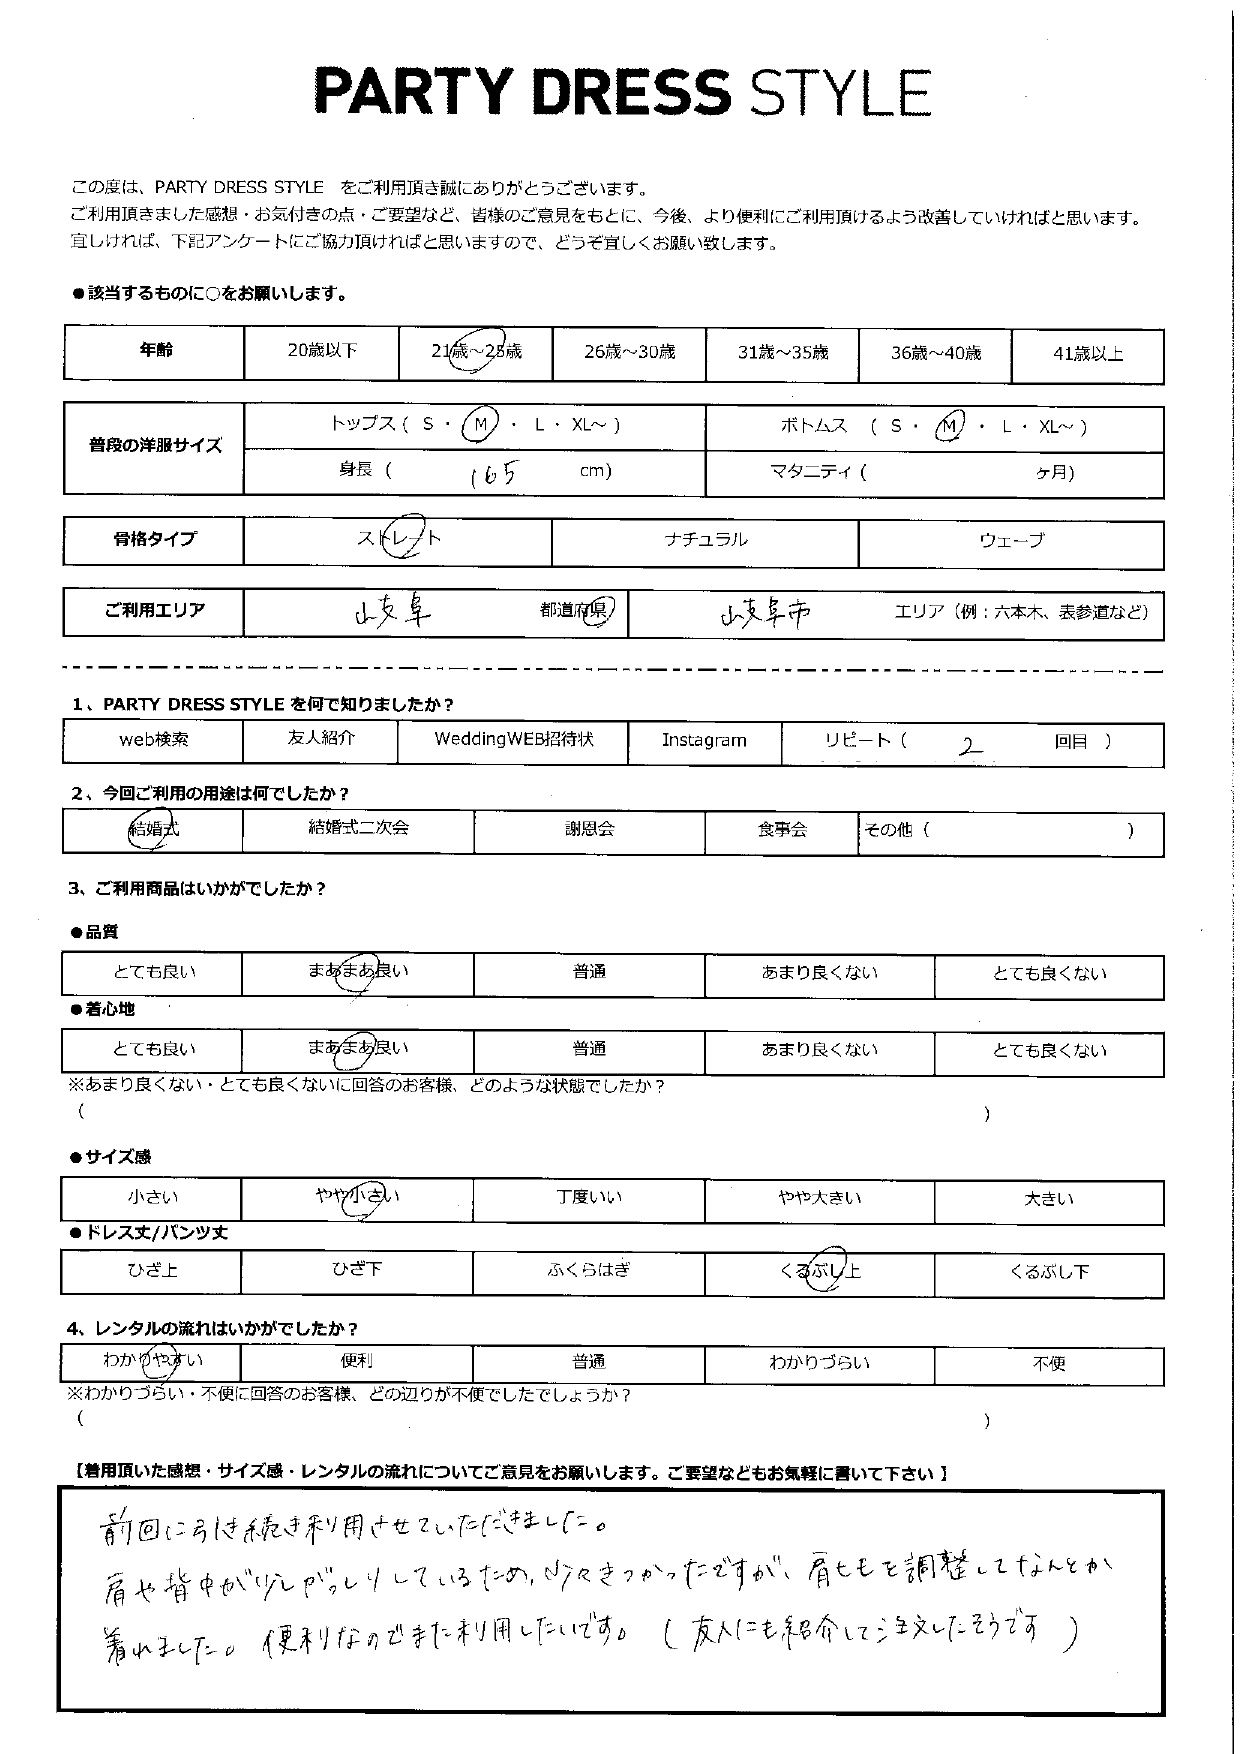 PARTY DRESS STYLE
この度は、PARTY DRESS STYLE をご利用頂き誠にありがとうございます。
ご利用頂きました感想・お気付きの点・ご要望など、皆様のご意見をもとに、今後、より便利にご利用頂けるよう改善していければと思います。
宜しければ、下記アンケートにご協力頂ければと思いますので、どうぞ宜しくお願い致します。
●該当するものに○をお願いします。
年齢 20歳以下 21歳～25歳 26歳～30歳 31歳～35歳 36歳～40歳 41歳以上
普段の洋服サイズ トップス ( S ・ M ・ L ・ XL～ ) ボトムス ( S ・ M ・ L ・ XL～ )
身長 ( 165 cm) マタニティ ( ヶ月)
骨格タイプ ストレート ナチュラル ウェーブ
ご利用エリア 岐阜 都道府県 岐阜市 エリア（例：六本木、表参道など）
1、PARTY DRESS STYLE を何で知りましたか？
web検索 友人紹介 WeddingWEB招待状 Instagram リピート ( 2 回目 )
2、今回ご利用の用途は何でしたか？
結婚式 結婚式二次会 謝恩会 食事会 その他 ( )
3、ご利用商品はいかがでしたか？
●品質
とても良い まあまあ良い 普通 あまり良くない とても良くない
●着心地
とても良い まあまあ良い 普通 あまり良くない とても良くない
※あまり良くない・とても良くないに回答のお客様、どのような状態でしたか？
( )
●サイズ感
小さい やや小さい 丁度いい やや大きい 大きい
●ドレス丈/パンツ丈
ひざ上 ひざ下 ふくらはぎ くるぶし上 くるぶし下
4、レンタルの流れはいかがでしたか？
わかりやすい 便利 普通 わかりづらい 不便
※わかりづらい・不便に回答のお客様、どの辺りが不便でしたでしょうか？
( )
【着用頂いた感想・サイズ感・レンタルの流れについてご意見をお願いします。ご要望などもお気軽に書いて下さい 】
前回に引き続き利用させていただきました。
肩や背中が少しがっしりしているため、少々きつかったですが、肩ヒモを調整してなんとか
着れました。便利なのでまた利用したいです。（友人にも紹介して注文したそうです）